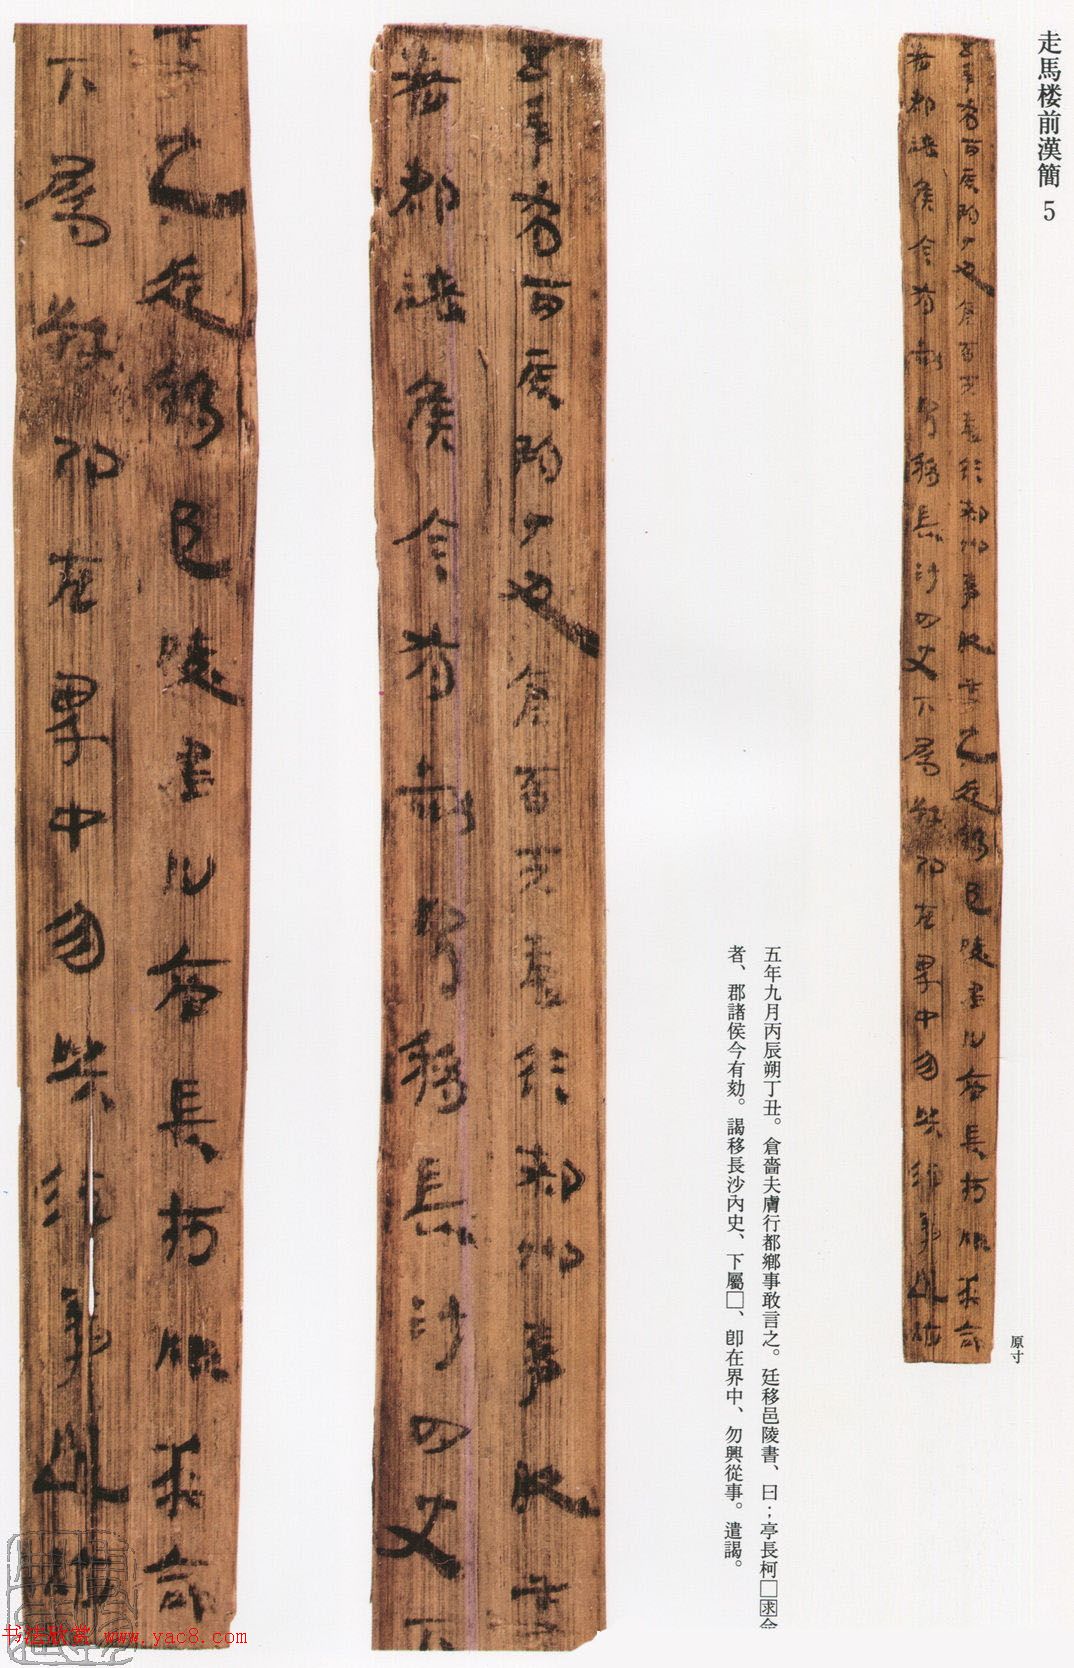 走馬楼前漢簡 5
原寸
五年九月丙辰朔丁丑。倉嗇夫膚行都鄉事敢言之。廷移邑陵書、曰；亭長柯□求僉
者、郡諸侯今有劾。謁移長沙內史、下屬□、卽在界中、勿興從事。遣謁。
书法欣赏 www.yac8.com